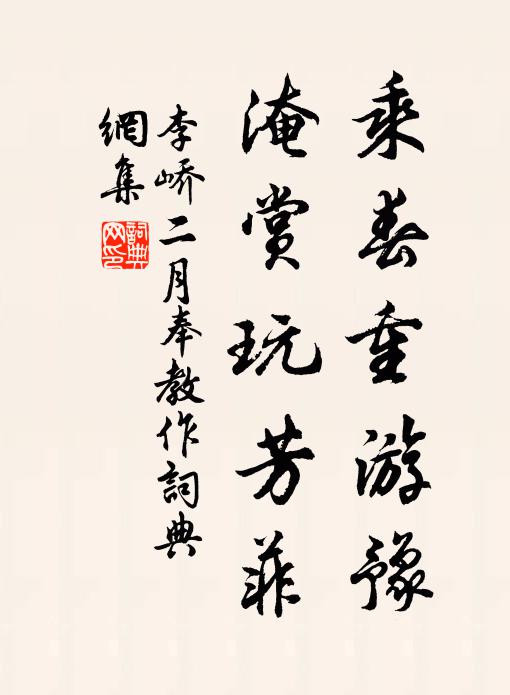 乘春重游豫
淹赏玩芳菲
李峤二月奉教作詞典
網集
詞典网印